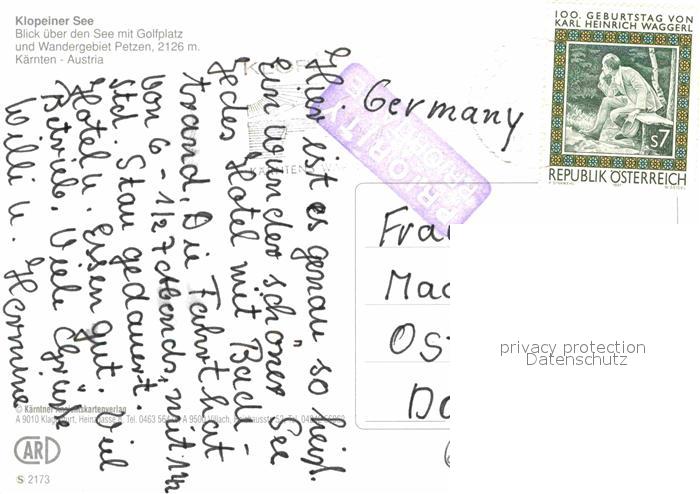 Klopeiner See
Blick über den See mit Golfplatz
und Wandergebiet Petzen, 2126 m.
Kärnten - Austria
100. GEBURTSTAG VON
KARL HEINRICH WAGGERL
s7
REPUBLIK ÖSTERREICH
1997
PRIORITY
Germany
KÄRNTENS
Hier ist es genau so heiß.
Ein wunder schöner See
Jedes Hotel mit Bade-
strand. Die Fahrt hat
von 6 - 1/2 7 Abends, mit 1 1/2
Std. Stau gedauert.
Hotel u. Essen gut. Viel
Betrieb. Viele Grüße
Willi u. Hermine
Fra
Mac
Os
Do
privacy protection
Datenschutz
© Kärntner Ansichtskartenverlag
A 9010 Klagenfurt, A 9500 Villach,
CARD
S 2173